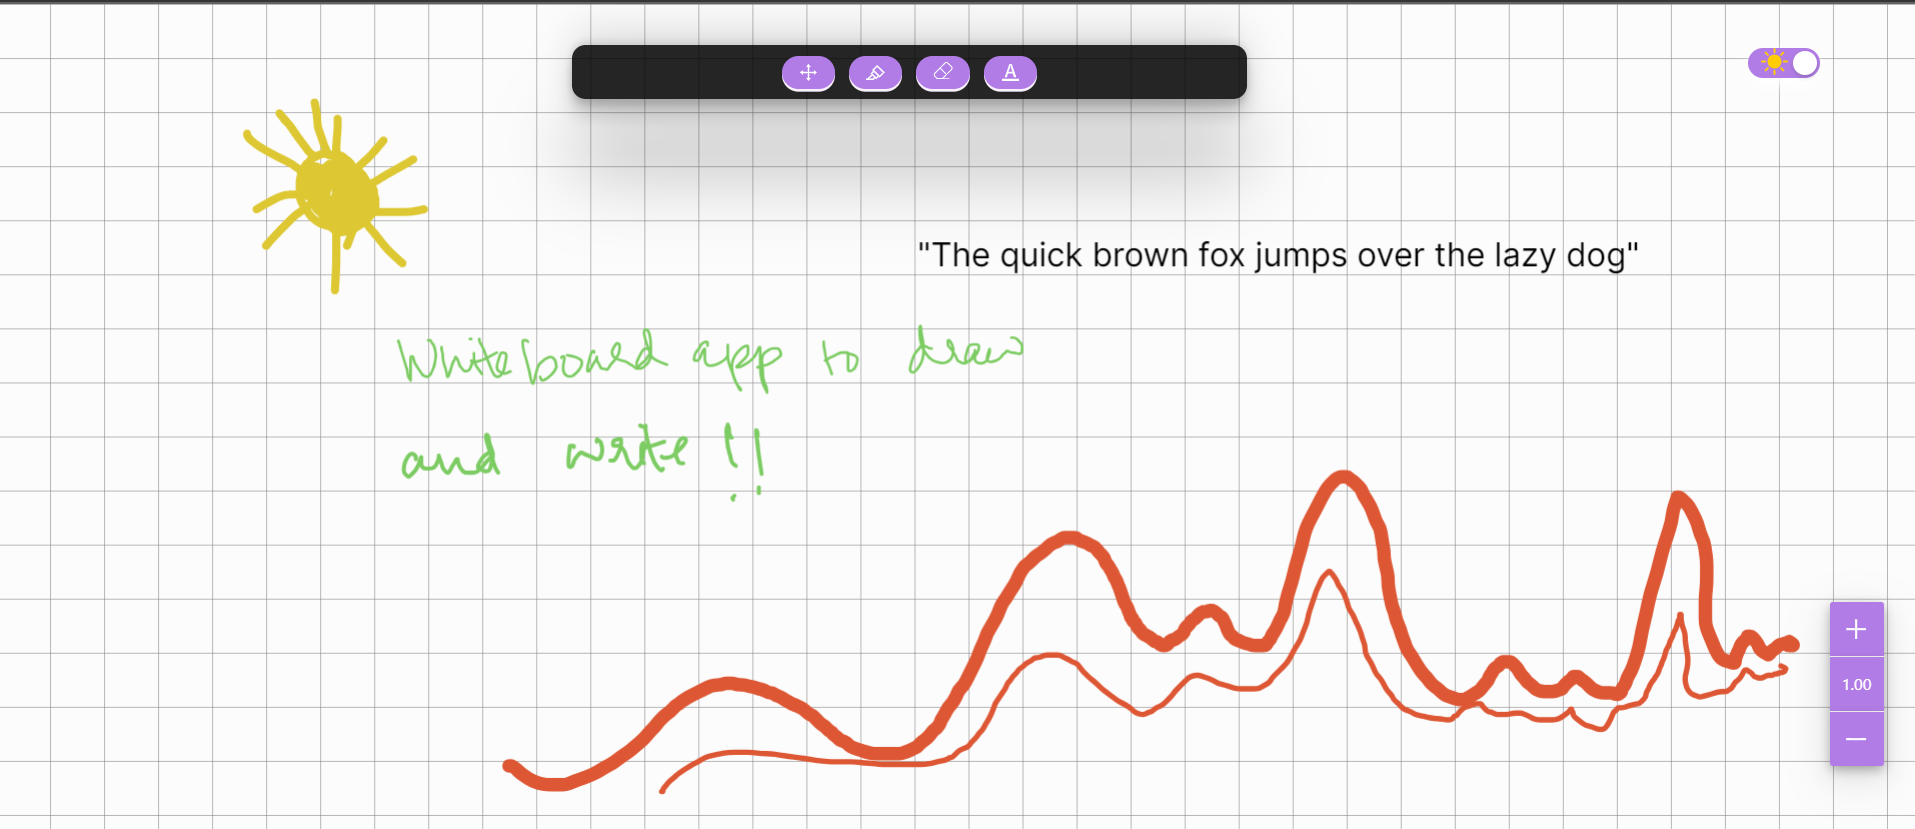 A
"The quick brown fox jumps over the lazy dog"
Whiteboard app to draw
and write !!
1.00